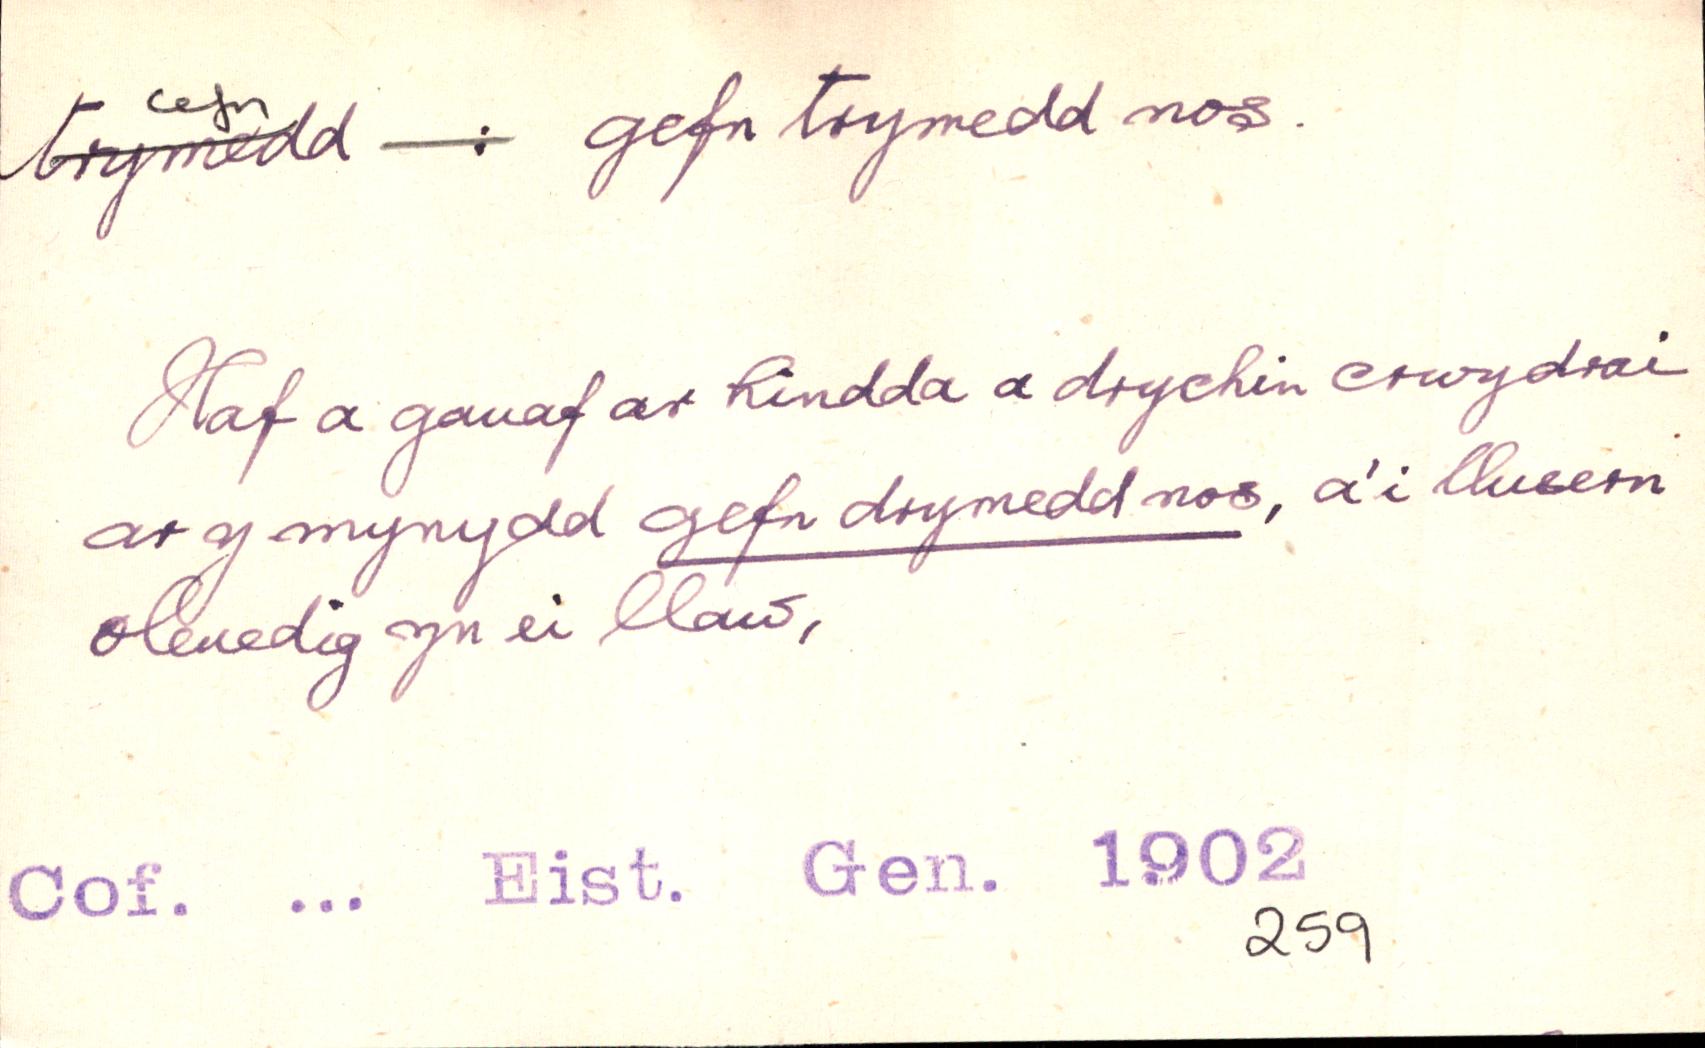 cefn
trymedd — : gefn trymedd nos.
Haf a gauaf ar hindda a drychin crwydrai
ar y mynydd gefn drymedd nos, a'i llusern
oleuedig yn ei llaw,
Cof. ... Eist. Gen. 1902
259